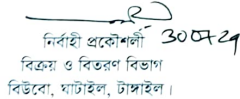 নির্বাহী প্রকৌশলী
বিক্রয় ও বিতরণ বিভাগ
বিউবো, ঘাটাইল, টাঙ্গাইল।